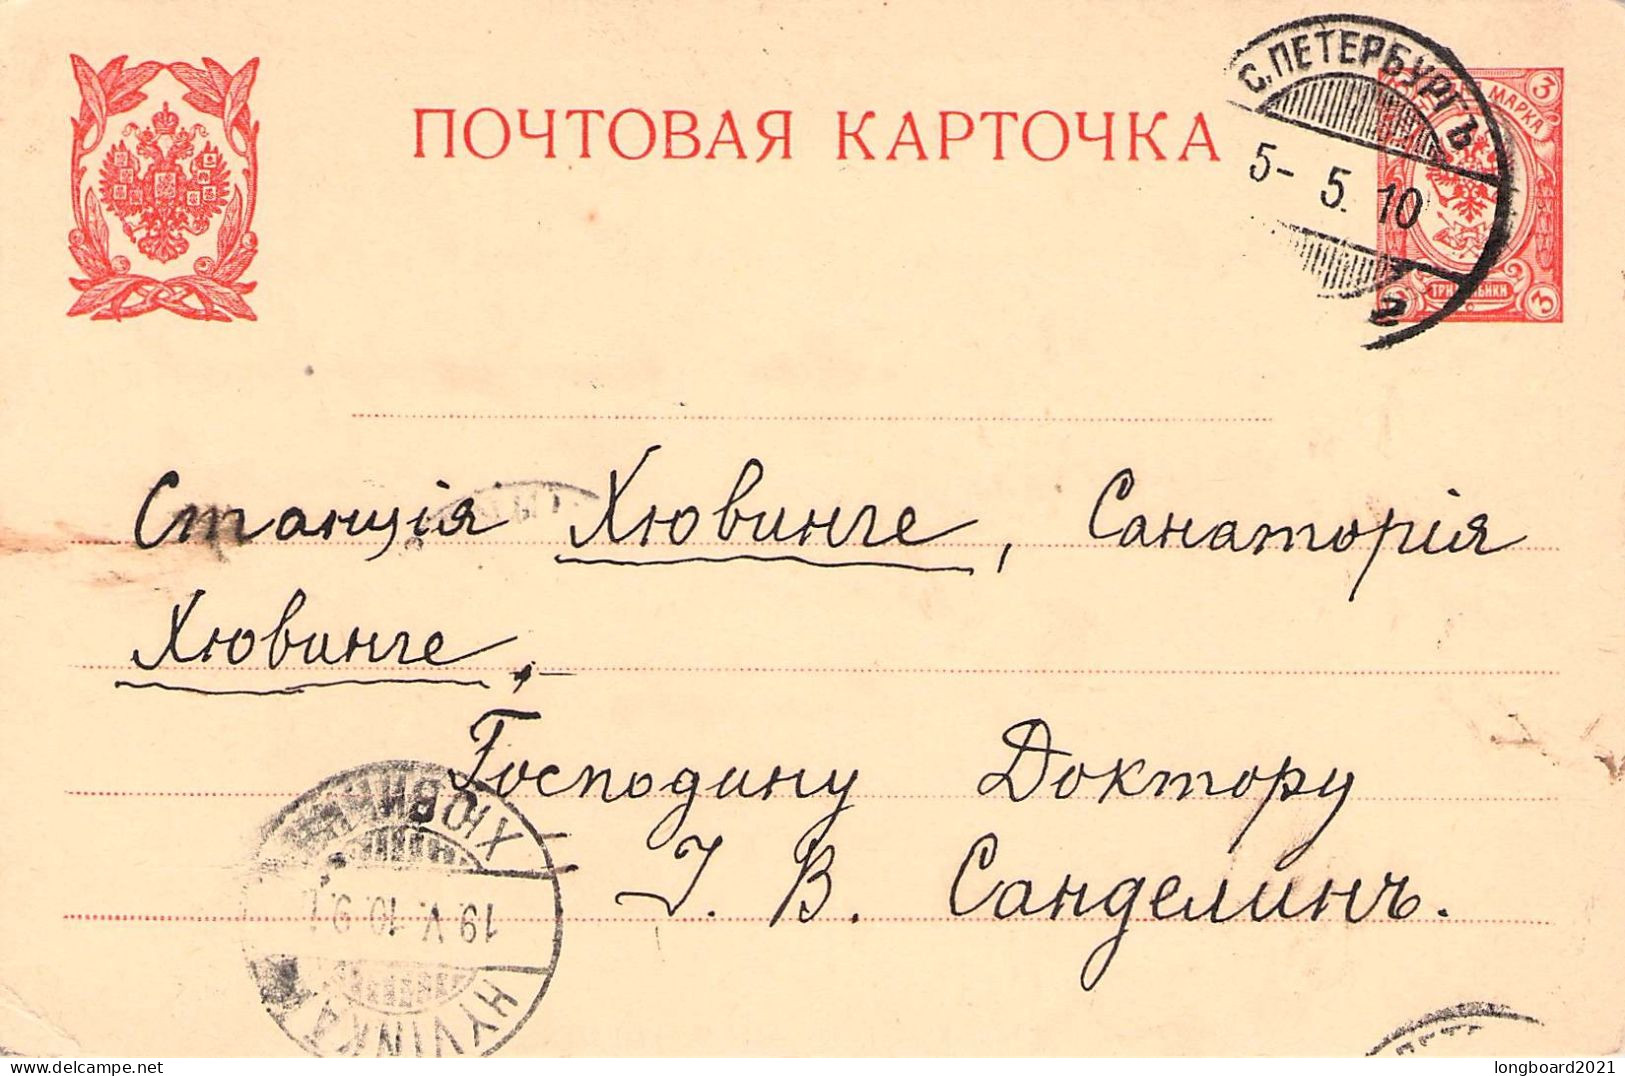 ПОЧТОВАЯ КАРТОЧКА
С.ПЕТЕРБУРГЪ
5- 5. 10
2
МАРКА
3
3
Станція Хювинге, Санаторія
Хювинге,
Господину Доктору
І. В. Санделинъ.
ХЮВИН
19. V. 10. 9.
HYVINKÄ
longboard2021